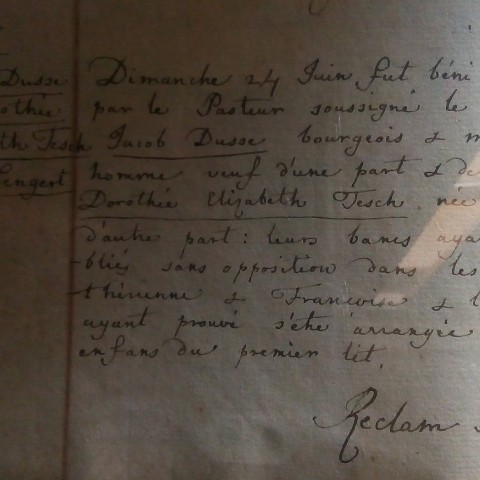 Dusse
othée
th Tesch
Lengert
Dimanche 24 Juin fut béni
par le Pasteur soussigné le
Jacob Dusse bourgeois & m
homme veuf d'une part & de
Dorothée Elizabeth Tesch née
d'autre part: leurs bancs aya
bliés sans opposition dans les
thérienne & Francoise & l
ayant prouvé s'etre arrangée
enfans du premier lit.
Reclam